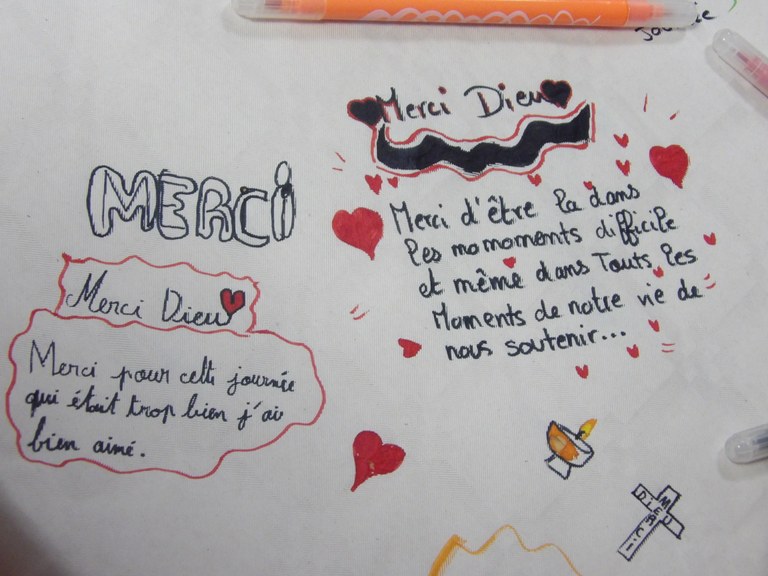 Merci Dieu
Merci d'être la dans
les momoments difficile
et même dans Touts les
Moments de notre vie de
nous soutenir...
MERCi
Merci Dieu
Merci pour cette journée
qui était trop bien j'ai
bien aimé.